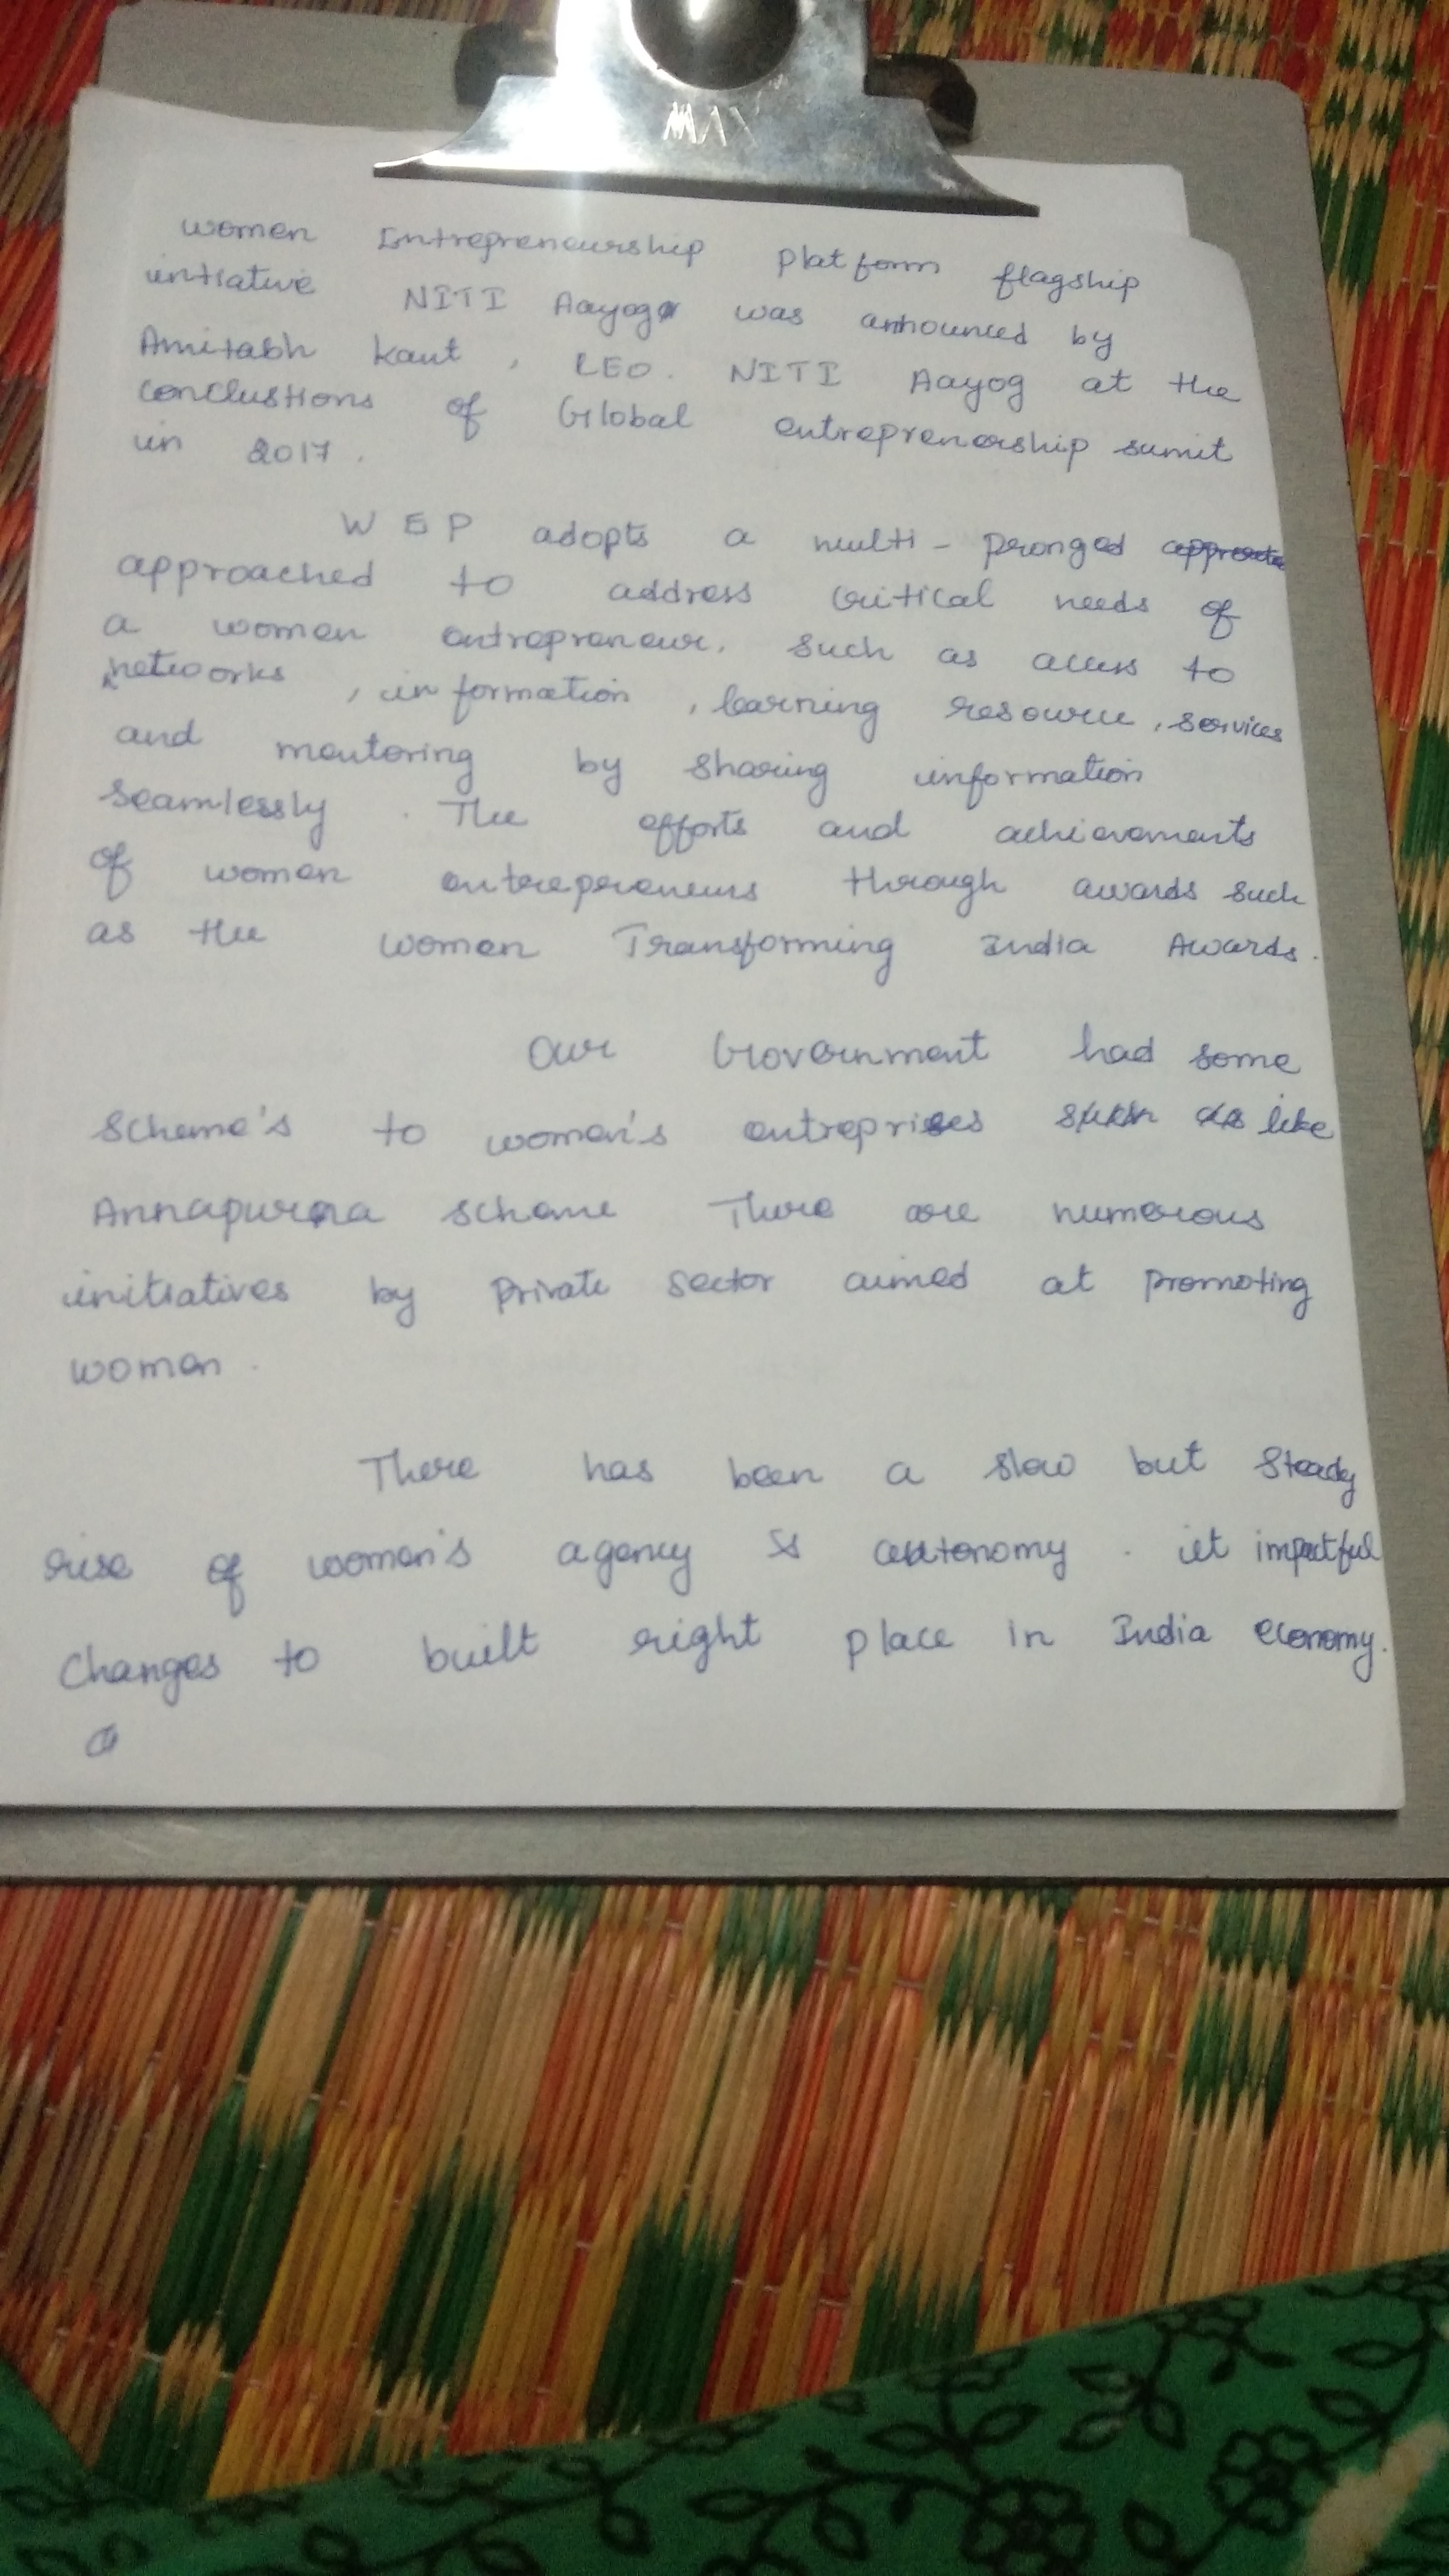 MAX
women Entrepreneurship platform flagship
intiative NITI Aayog was announced by
Amitabh kant, CEO. NITI Aayog at the
conclustions of Global entreprenership sumit
in 2017.
WEP adopts a multi-pronged
approached to address critical needs of
a women entrepreneur. such as access to
networks, information, learning resource, services
and mentoring by sharing information
seamlessly. The efforts and achievements
of women entrepreneurs through awards such
as the women Transforming India Awards.
Our Government had some
scheme's to women's entreprises like
Annapurna scheme There are numerous
initiatives by private sector aimed at promoting
women.
There has been a slow but steady
rise of women's agency & autonomy. it impactful
changes to built right place in India economy.